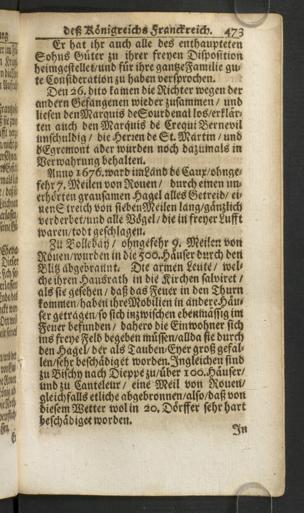 deß Königreichs Franckreich. 473
Er hat ihr auch alle des enthaupteten
Sohns Güter zu ihrer freyen Disposition
heimgestellet / und für ihre gantze Familie gu-
te Consideration zu haben versprochen.
Den 26. dito kamen die Richter wegen der
andern Gefangenen wieder zusammen / und
liesen den Marquis de Sourdenal los / erklär-
ten auch den Marquis de Crequi Bernevil
unschuldig / die Herren de St. Martin / und
d'Egremont aber wurden noch dazumals in
Verwahrung behalten.
Anno 1676. ward im Land de Caux / ohnge-
fehr 7. Meilen von Rouen / durch einen un-
erhörten grausamen Hagel alles Getreid / ei-
nen Streich von sieben Meilen lang / gäntzlich
verderbet / und alle Vögel / die in freyer Lufft
waren / todt geschlagen.
Zu Bollebay / ohngefehr 9. Meilen von
Rouen / wurden in die 500. Häuser durch den
Blitz abgebrannt. Die armen Leute / wel-
che ihren Hausrath in die Kirchen salviret /
als sie gesehen / daß das Feuer in den Thurn
kommen / haben ihre Mobilien in andere Häu-
ser getragen / so sich inzwischen ebenmässig im
Feuer befunden / dahero die Einwohner sich
ins freye Feld begeben müssen / allda sie durch
den Hagel / der als Tauben-Eyer groß gefal-
len / sehr beschädiget worden. Ingleichen sind
zu Bischy nach Dieppe zu / über 100. Häuser /
und zu Canteleur / eine Meil von Rouen /
gleichfalls etliche abgebronnen / also / daß von
diesem Wetter wol in 20. Dörffer sehr hart
beschädiget worden.
In